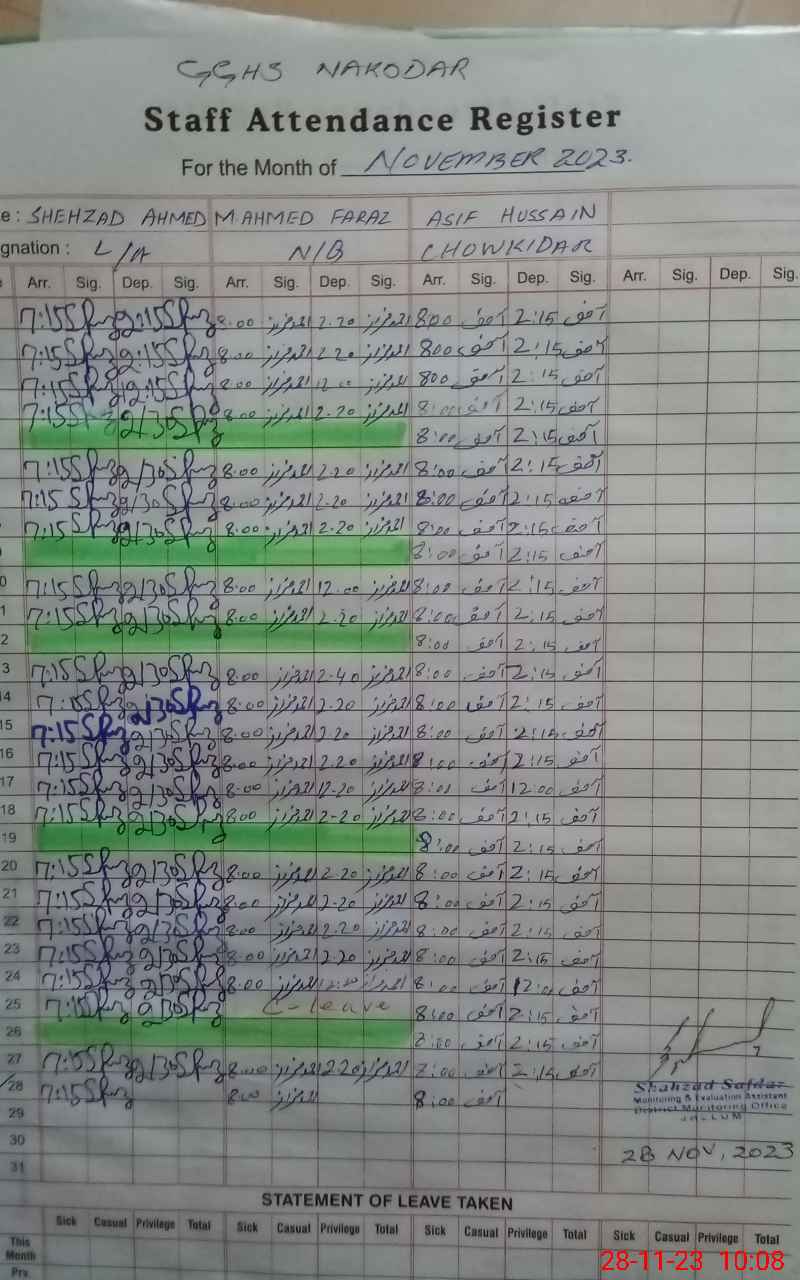 GGHS NAKODAR
Staff Attendance Register
For the Month of NOVEMBER 2023.
e : SHEHZAD AHMED M AHMED FARAZ ASIF HUSSAIN
gnation : L/A N/B CHOWKIDAR
Arr. Sig. Dep. Sig. Arr. Sig. Dep. Sig. Arr. Sig. Dep. Sig. Arr. Sig. Dep. Sig.
7:15 2:15 8:00 2.20 800 آصف 2:15 آصف
7:15 2:15 8:00 2.20 800 آصف 2:15 آصف
7:15 2:15 8:00 12.00 800 آصف 2:15 آصف
7:15 2/30 8:00 2.20 8:00 آصف 2:15 آصف
8:00 آصف 2:15 آصف
7:15 2/30 8:00 2.20 8:00 آصف 2:15 آصف
7:15 2/30 8:00 2.20 8:00 آصف 2:15 آصف
7:15 2/30 8:00 2.20 8:00 آصف 2:15 آصف
8:00 آصف 2:15 آصف
0 7:15 2/30 8:00 12.00 8:00 آصف 2:15 آصف
1 7:15 2/30 8:00 2.20 8:00 آصف 2:15 آصف
2 8:00 آصف 2:15 آصف
3 7:15 2/30 8:00 2.40 8:00 آصف 2:15 آصف
14 7:15 2/30 8:00 2.20 8:00 آصف 2:15 آصف
15 7:15 2/30 8:00 2.20 8:00 آصف 2:15 آصف
16 7:15 2/30 8:00 2.20 8:00 آصف 2:15 آصف
17 7:15 2/30 8:00 12.20 8:00 آصف 12:00 آصف
18 7:15 2/30 8:00 2.20 8:00 آصف 2:15 آصف
19 8:00 آصف 2:15 آصف
20 7:15 2/30 8:00 2.20 8:00 آصف 2:15 آصف
21 7:15 2/30 8:00 2.20 8:00 آصف 2:15 آصف
22 7:15 2/30 8:00 2.20 8:00 آصف 2:15 آصف
23 7:15 2/30 8:00 2.20 8:00 آصف 2:15 آصف
24 7:15 2/30 8:00 8:00 آصف 12:00 آصف
25 7:15 2/30 C-leave 8:00 آصف 2:15 آصف
26 8:00 آصف 2:15 آصف
27 7:15 2/30 8:00 2.20 8:00 آصف 2:15 آصف
28 7:15 8:00 8:00 آصف
Shahzad Safdar
Monitoring & Evaluation Assistant
District Monitoring Office
JHELUM
29
30
28 NOV, 2023
31
STATEMENT OF LEAVE TAKEN
Sick Casual Privilege Total Sick Casual Privilege Total Sick Casual Privilege Total Sick Casual Privilege Total
This Month
Prv
28-11-23 10:08